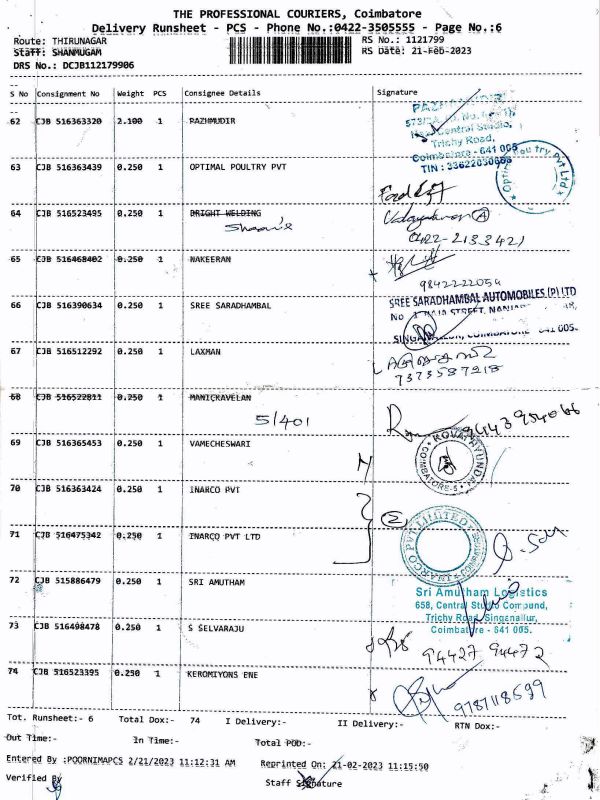 THE PROFESSIONAL COURIERS, Coimbatore
Delivery Runsheet - PCS - Phone No.:0422-3505555 - Page No.:6
Route: THIRUNAGAR RS No.: 1121799
Staff: SHANMUGAM RS Date: 21-Feb-2023
DRS No.: DCJB112179906
S No Consignment No Weight PCS Consignee Details Signature
62 CJB 516363320 2.100 1 PAZHMUDIR
573/
Central Studio,
Trichy Road,
Coimbatore - 641 005
TIN : 33622030666
63 CJB 516363439 0.250 1 OPTIMAL POULTRY PVT
64 CJB 516523495 0.250 1 BRIGHT WELDING
0422-2133421
65 CJB 516468402 0.250 1 NAKEERAN
9842222054
66 CJB 516390634 0.250 1 SREE SARADHAMBAL
SREE SARADHAMBAL AUTOMOBILES (P) LTD
67 CJB 516512292 0.250 1 LAXMAN
7373587218
68 CJB 516522811 0.250 1 MANICKAVELAN
5/401
69 CJB 516365453 0.250 1 VAMECHESWARI
KOVAI HYUNDAI
COIMBATORE-5
70 CJB 516363424 0.250 1 INARCO PVT
71 CJB 516475342 0.250 1 INARCO PVT LTD
INARCO PVT LIMITED
72 CJB 515886479 0.250 1 SRI AMUTHAM
Sri Amutham Logistics
658, Central Studio Compund,
Trichy Road, Singanallur,
Coimbatore - 641 005.
73 CJB 516498478 0.250 1 S SELVARAJU
94427 94472
74 CJB 516523395 0.250 1 KEROMIYONS ENE
9787118599
Tot. Runsheet:- 6 Total Dox:- 74 I Delivery:- II Delivery:- RTN Dox:-
Out Time:- In Time:- Total POD:-
Entered By :POORNIMAPCS 2/21/2023 11:12:31 AM Reprinted On: 21-02-2023 11:15:50
Verified By Staff Signature